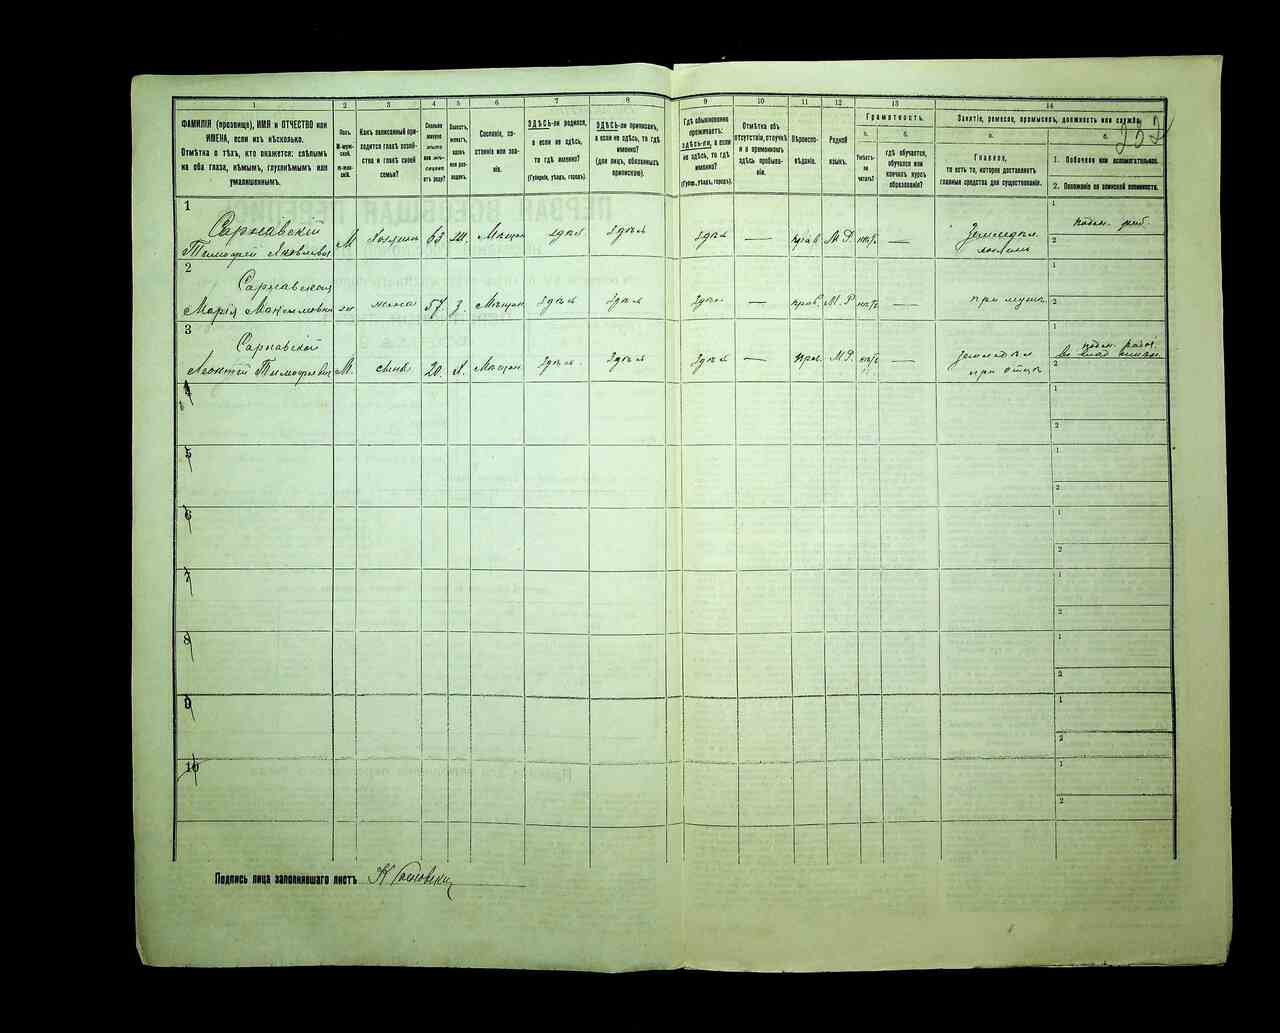 1 2 3 4 5 6 7 8 9 10 11 12 13 14
ФАМИЛІЯ (прозвище), ИМЯ и ОТЧЕСТВО или
ИМЕНА, если ихъ нѣсколько.
Отмѣтка о тѣхъ, кто окажется: слѣпымъ
на оба глаза, нѣмымъ, глухонѣмымъ или
умалишеннымъ.
Полъ.
М-муж-
ской.
Ж-жен-
скій.
Какъ записанный при-
ходится главѣ хозяй-
ства и главѣ своей
семьи?
Сколько
минуло
лѣтъ
или мѣ-
сяцевъ
отъ роду?
Холостъ,
женатъ,
вдовъ
или раз-
веденъ.
Сословіе, со-
стояніе или зва-
ніе.
ЗДѢСЬ-ли родился,
а если не здѣсь,
то гдѣ именно?
(Губернія, уѣздъ, городъ).
ЗДѢСЬ-ли приписанъ,
а если не здѣсь, то гдѣ
именно?
(для лицъ, обязанныхъ
припискою).
Гдѣ обыкновенно
проживаетъ:
здѣсь-ли, а если
не здѣсь, то гдѣ
именно?
(Губерн., уѣздъ, городъ).
Отмѣтка объ
отсутствіи, отлучкѣ
и о временномъ
здѣсь пребыва-
ніи.
Вѣроиспо-
вѣданіе.
Родной
языкъ.
Грамотность.
а. б.
Умѣетъ-
ли
читать?
гдѣ обучается,
обучался или
кончилъ курсъ
образованія?
Занятіе, ремесло, промыселъ, должность или служба.
а. б.
Главное,
то есть то, которое доставляетъ
главныя средства для существованія.
1. Побочное или вспомогательное.
2. Положеніе по воинской повинности.
1
Сарнавскій
Тимофей Яковлевъ М Хозяинъ 63 Ж. Мѣщан здѣсь здѣсь здѣсь — прав М.Р. нѣтъ — Земледѣл.
1
2
2
Сарнавская
Марія Максимовна ж жена 57 З. Мѣщан здѣсь здѣсь здѣсь — прав. М.Р нѣтъ — при мужѣ
1
2
3
Сарнавскій
Леонтій Тимофеевъ М. сынъ 20 Х. Мѣщан здѣсь здѣсь здѣсь — прав. М.Р. нѣтъ — земледѣл
при отцѣ
1
2
4
1
2
5
1
2
6
1
2
7
1
2
8
1
2
9
1
2
10
1
2
Подпись лица заполнявшаго листъ